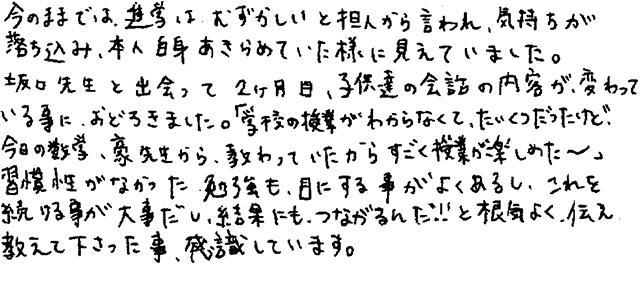 今のままでは、進学は、むずかしいと担人から言われ、気持ちが
落ち込み、本人自身あきらめていた様に見えていました。
坂口先生と出会って2ヶ月目、子供達の会話の内容が、変わって
いる事に、おどろきました。「学校の授業がわからなくて、たいくつだったけど、
今日の数学、豪先生から、教わっていたからすごく授業が楽しめた〜」
習慣性がなかった勉強も、目にする事がよくあるし、これを
続ける事が大事だし、結果にも、つながるんだ!!と根気よく、伝え
教えて下さった事、感識しています。